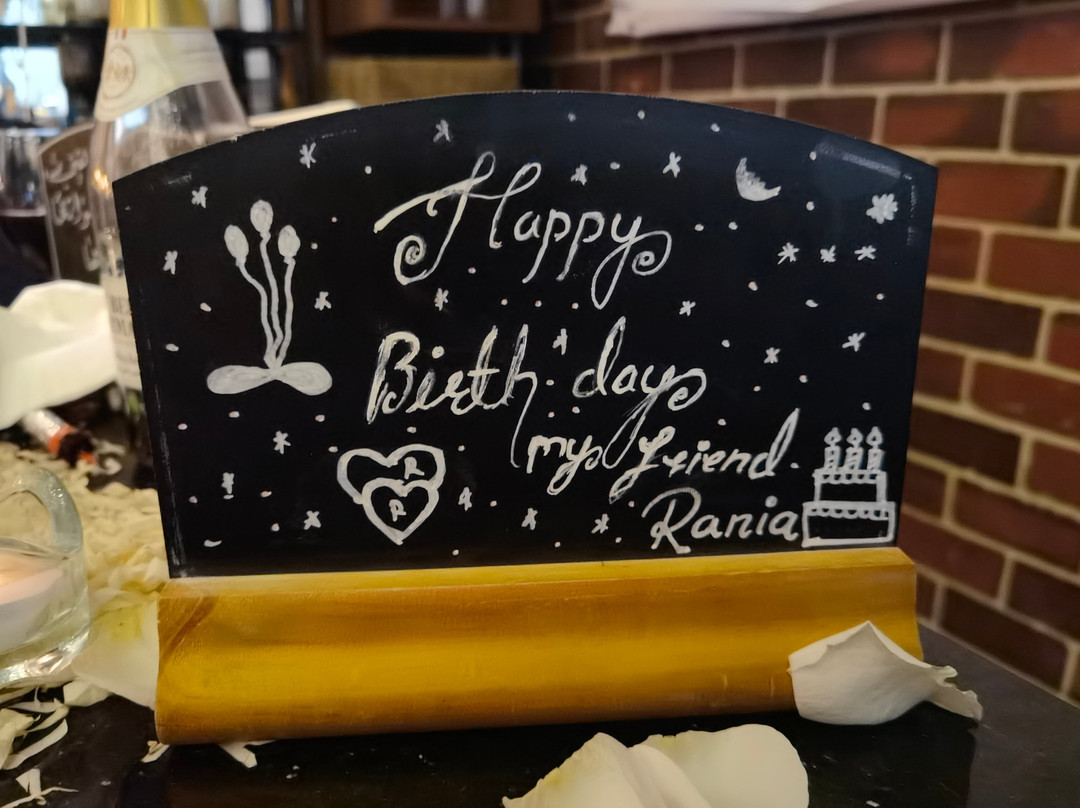 Happy
Birth day
my friend
Rania
R
R